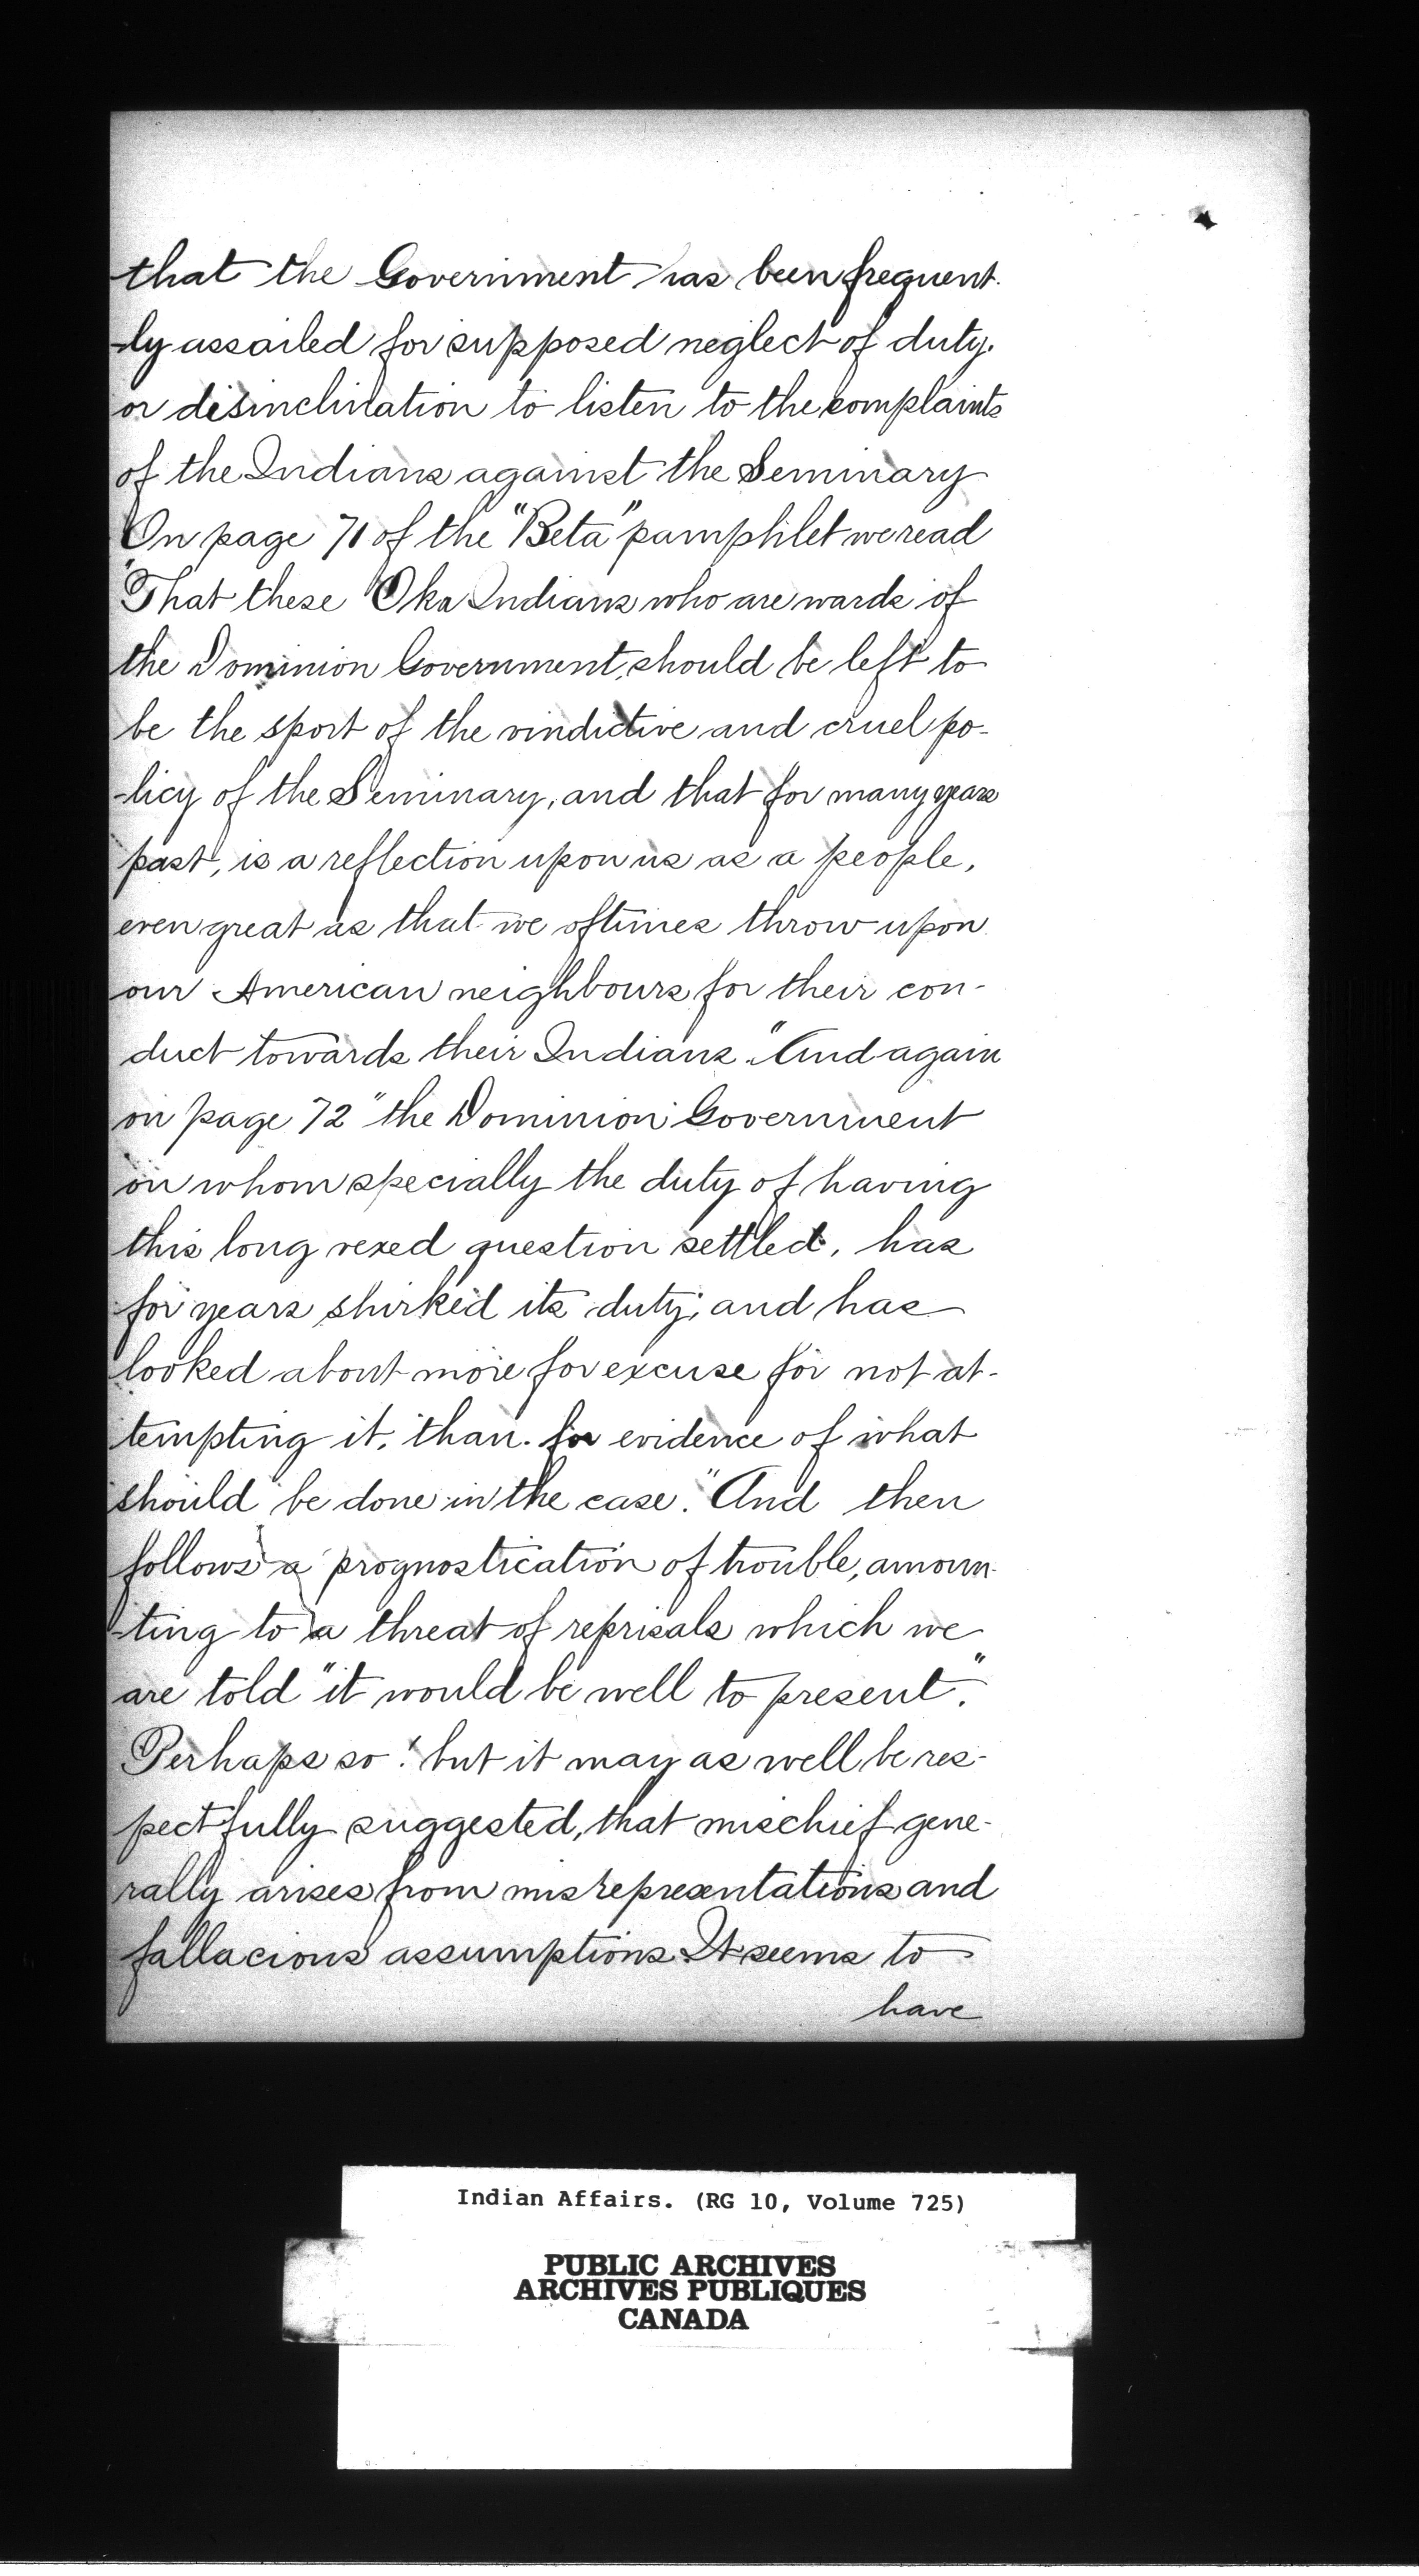 that the Government has been frequent-
-ly assailed for supposed neglect of duty.
or disinclination to listen to the complaints
of the Indians against the Seminary
On page 71 of the "Beta" pamphlet we read
"That these Oka Indians who are wards of
the Dominion Government, should be left to
be the sport of the vindictive and cruel po-
-licy of the Seminary, and that for many years
past, is a reflection upon us as a people,
even great as that we oftimes throw upon
our American neighbours for their con-
duct towards their Indians." And again
on page 72 "the Dominion Government
on whom specially the duty of having
this long vexed question settled, has
for years shirked its duty; and has
looked about more for excuse for not at-
tempting it, than for evidence of what
should be done in the case." And then
follows a prognostication of trouble, amoun-
-ting to a threat of reprisals which we
are told "it would be well to present."
Perhaps so! but it may as well be res-
pectfully suggested, that mischief gene-
rally arises from misrepresentations and
fallacious assumptions. It seems to
have
Indian Affairs. (RG 10, Volume 725)
PUBLIC ARCHIVES
ARCHIVES PUBLIQUES
CANADA